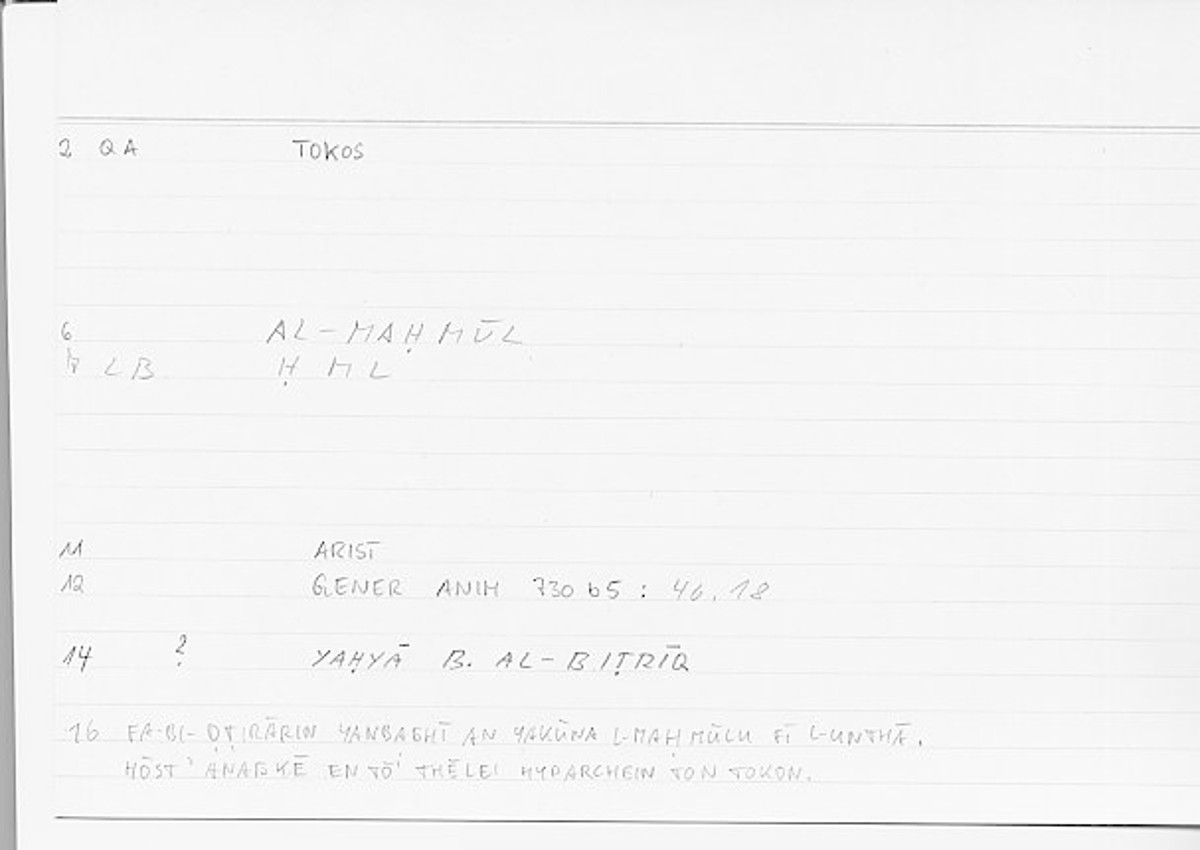 2 QA TOKOS
6 AL-MAḤMŪL
7 LB Ḥ M L
11 ARIST
12 GENER ANIM 730 b5 : 46.18
14 ? YAḤYĀ B. AL-BIṬRĪQ
16 FA-BI-ḌṬIRĀRIN YANBAGHĪ AN YAKŪNA L-MAḤMŪLU FĪ L-UNTHĀ.
HŌST' ANAGKĒ EN TŌ' THĒLEI HYPARCHEIN TON TOKON.